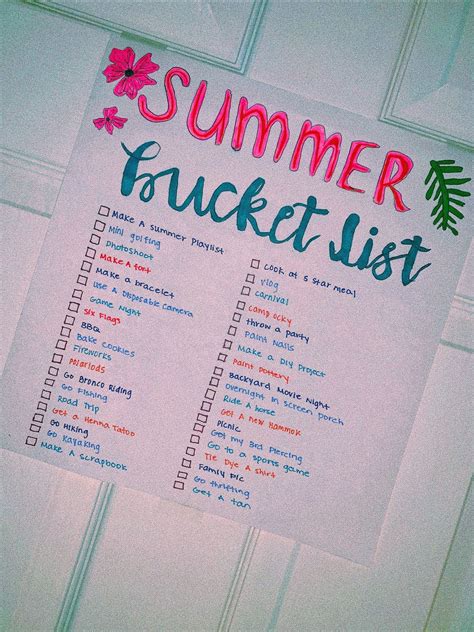 SUMMER
bucket list
Make A Summer Playlist
Mini golfing
Photoshoot
Make A fort
Make a bracelet
Use A Disposable Camera
Game Night
Six Flags
BBQ
Bake cookies
Fireworks
Polariods
Go Bronco Riding
Go Fishing
Road Trip
Get a Henna Tatoo
Go Hiking
Go Kayaking
Make A Scrapbook
Cook at 5 Star meal
Vlog
Carnival
Camp ocky
throw a party
Paint Nails
Make a DIY Project
Paint Pottery
Backyard Movie Night
Overnight in screen porch
Ride A horse
Get A new Hammok
Picnic
Get my 3rd Piercing
Go to a sports game
Tie Dye A shirt
Family Pic
Go thrifting
Get A tan